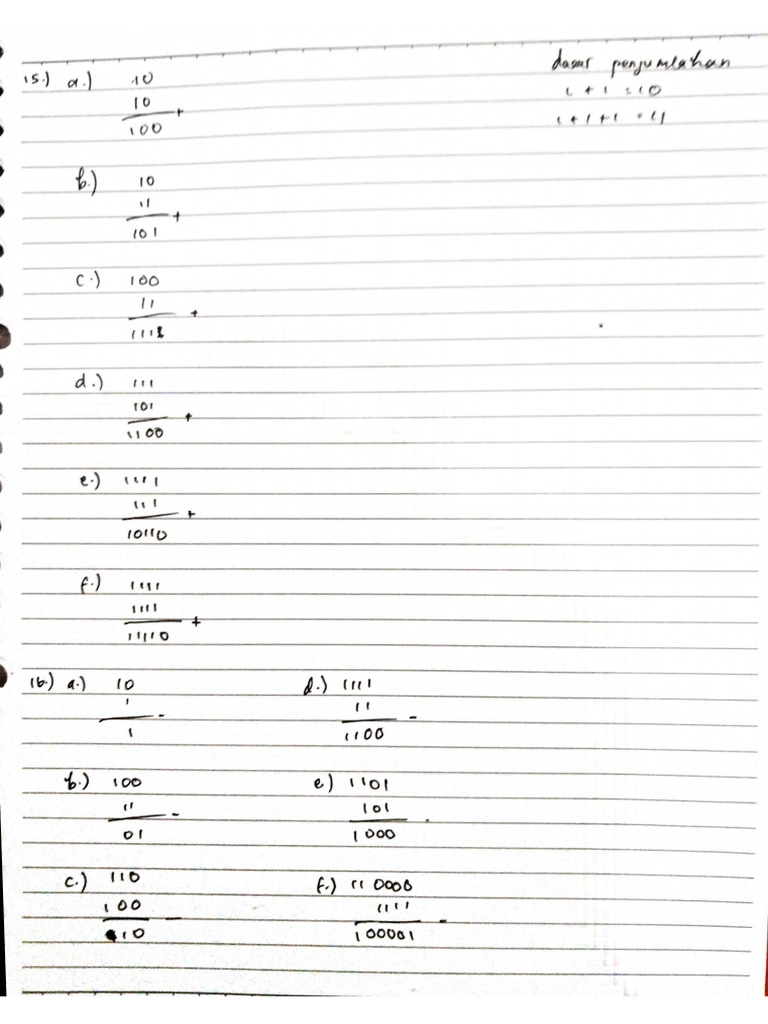 dasar penjumlahan
1 + 1 = 10
1 + 1 + 1 = 11
15.) a.) 10
10
+
100
b.) 10
11
+
101
c.) 100
11
+
111
d.) 111
101
+
1100
e.) 1111
111
+
10110
f.) 1111
1111
+
11110
16.) a.) 10
1
-
1
b.) 100
11
-
01
c.) 110
100
-
10
d.) 1111
11
-
1100
e) 1101
101
-
1000
f.) 110000
1111
-
100001